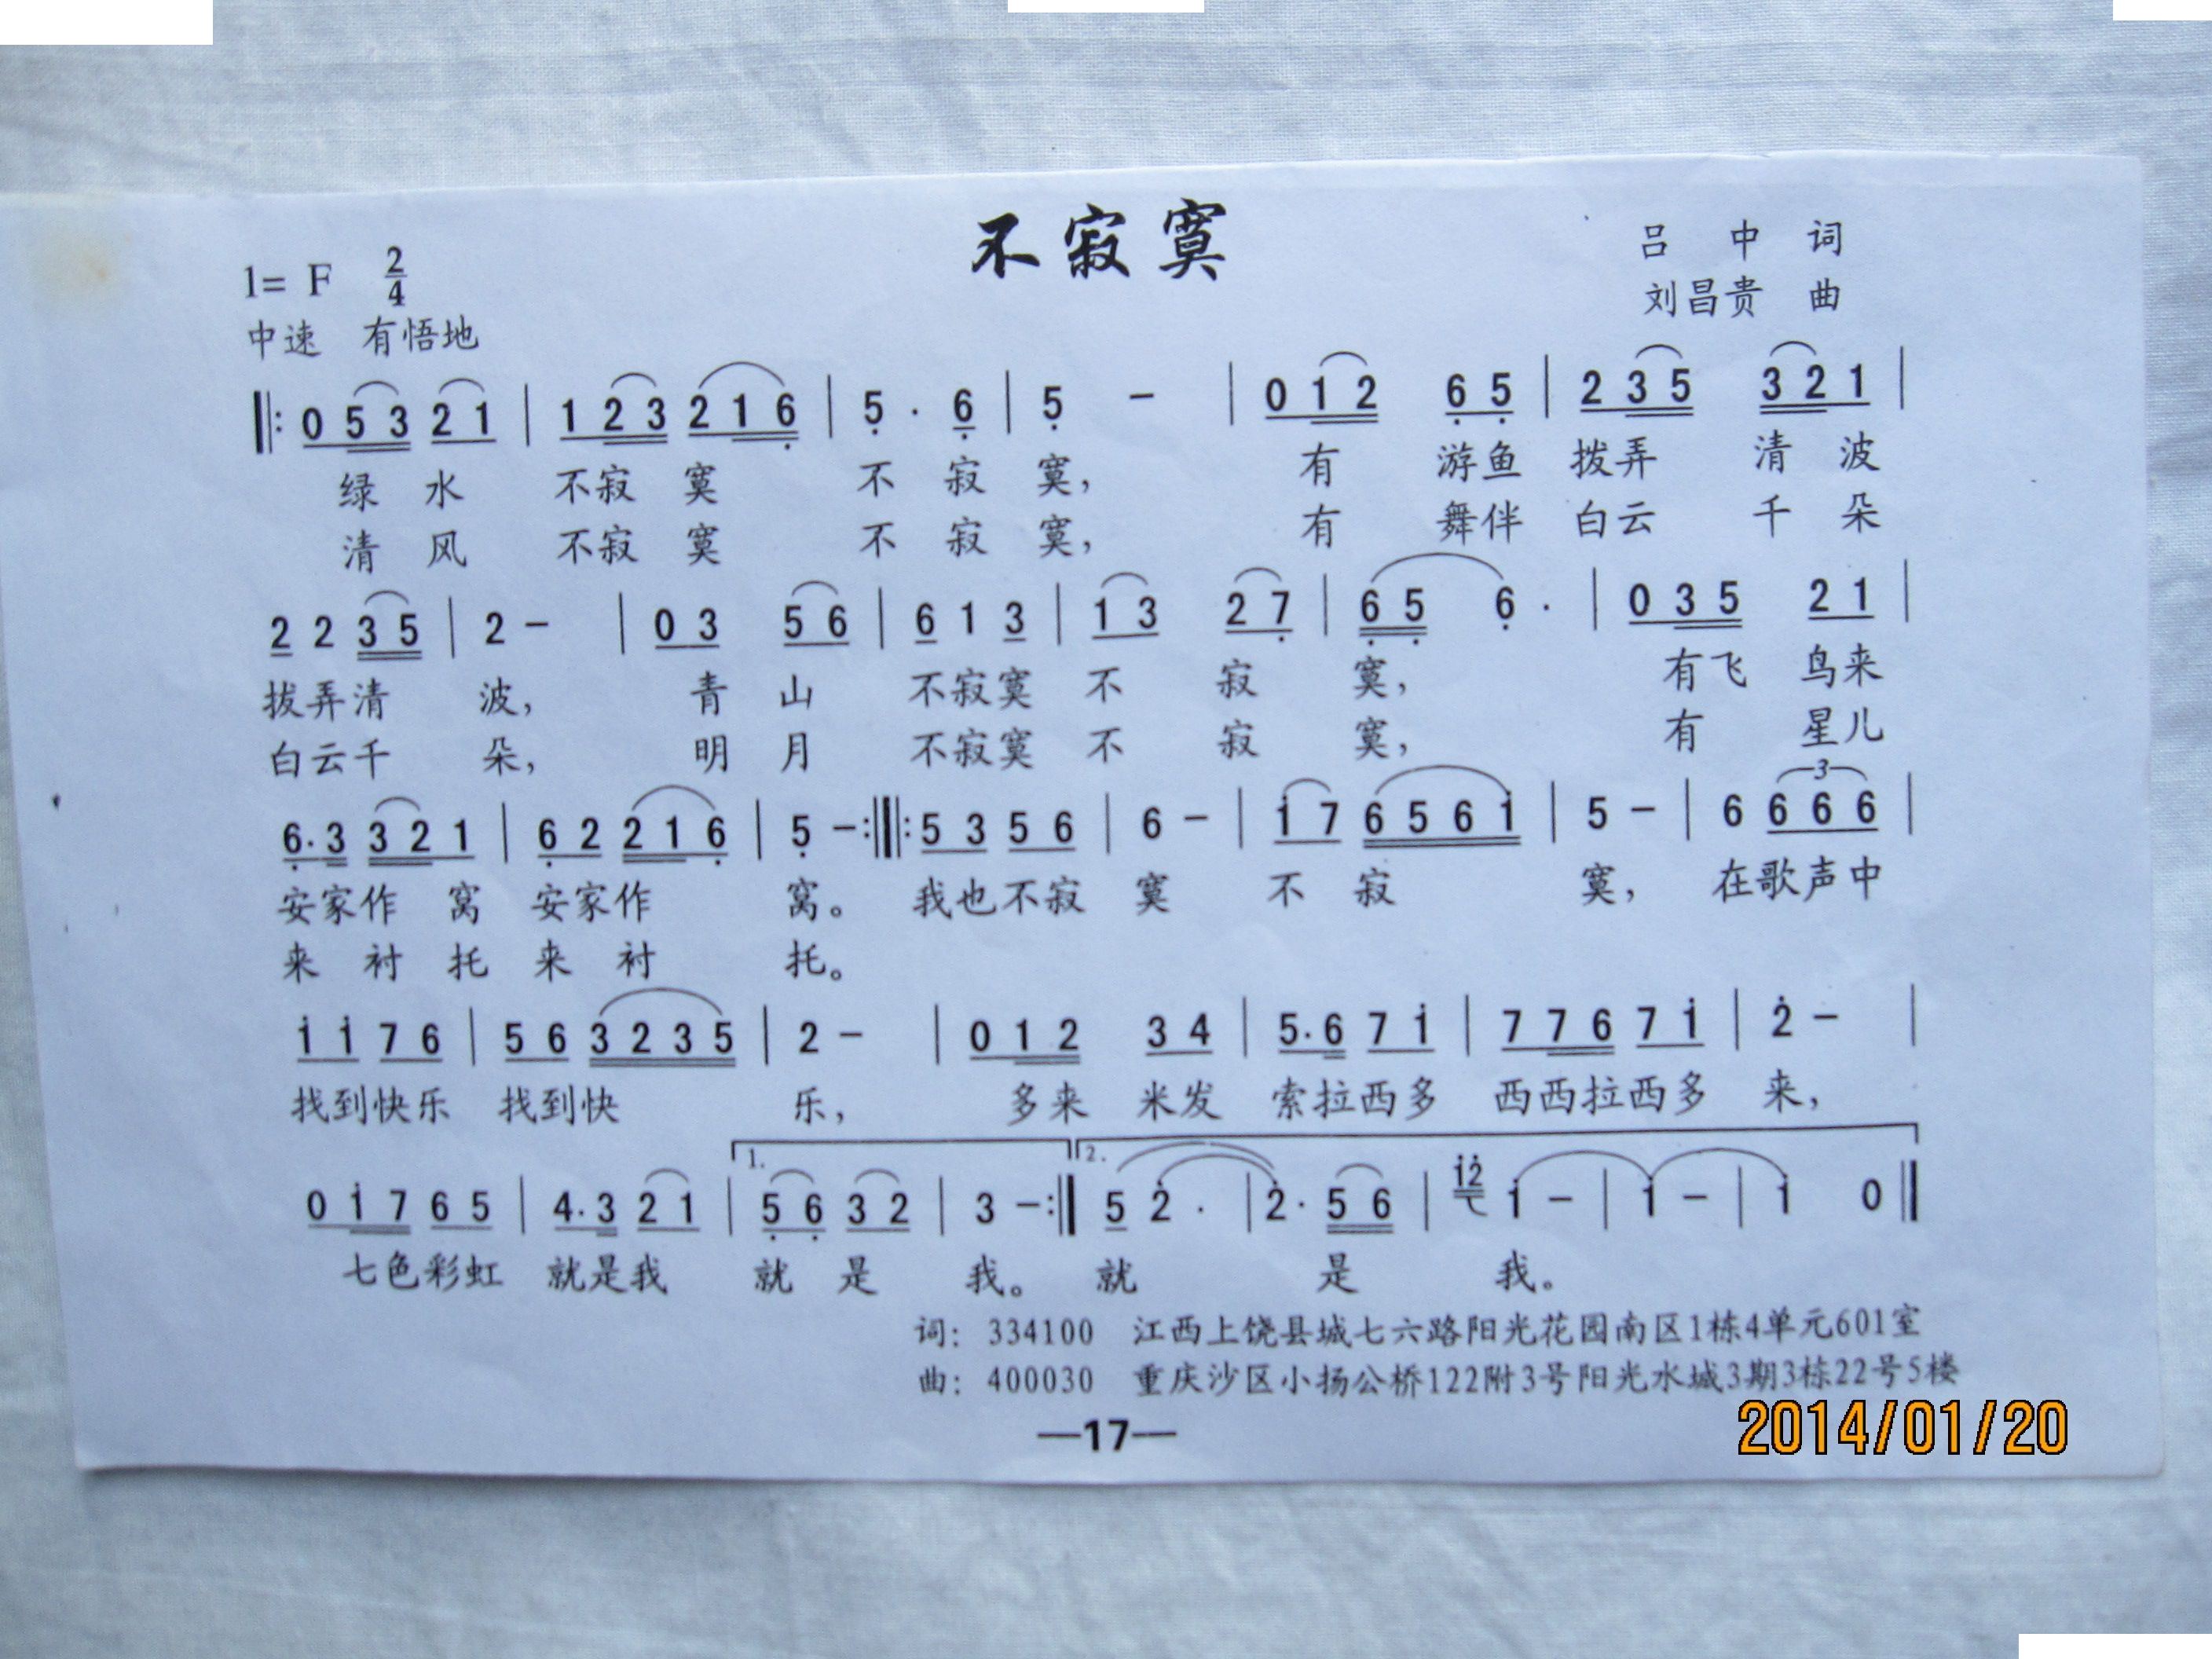 不寂寞
1= F 2/4
吕 中 词
中速 有悟地
刘昌贵 曲
0 5 3 2 1 | 1 2 3 2 1 6 | 5 . 6 | 5 - | 0 1 2 6 5 | 2 3 5 3 2 1 |
绿 水 不寂 寞 不 寂 寞， 有 游鱼 拨弄 清 波
清 风 不寂 寞 不 寂 寞， 有 舞伴 白云 千 朵
2 2 3 5 | 2 - | 0 3 5 6 | 6 1 3 | 1 3 2 7 | 6 5 6 . | 0 3 5 2 1 |
拔弄清 波， 青 山 不寂寞 不 寂 寞， 有飞 鸟来
白云千 朵， 明 月 不寂寞 不 寂 寞， 有 星儿
6. 3 3 2 1 | 6 2 2 1 6 | 5 - :‖: 5 3 5 6 | 6 - | i 7 6 5 6 i | 5 - | 6 6 6 6 |
3
安家作 窝 安家作 窝。 我也不寂 寞 不 寂 寞， 在歌声中
来 衬 托 来 衬 托。
i i 7 6 | 5 6 3 2 3 5 | 2 - | 0 1 2 3 4 | 5. 6 7 i | 7 7 6 7 i | 2̇ - |
找到快乐 找到快 乐， 多来 米发 索拉西多 西西拉西多 来，
1. 2.
0 i 7 6 5 | 4. 3 2 1 | 5 6 3 2 | 3 - :‖ 5 2̇ . | 2̇. 5 6 | i2̇ i - | i - | i 0 ‖
七色彩虹 就是我 就 是 我。 就 是 我。
词： 334100 江西上饶县城七六路阳光花园南区1栋4单元601室
曲： 400030 重庆沙区小扬公桥122附3号阳光水城3期3栋22号5楼
—17—
2014/01/20